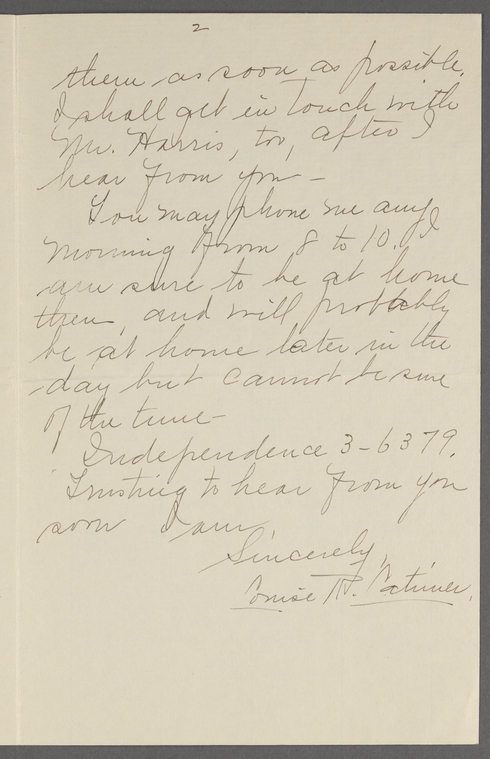 2
them as soon as possible.
I shall get in touch with
Mr. Harris, too, after I
hear from you –
You may phone me any
morning from 8 to 10. I
am sure to be at home
then, and will probably
be at home later in the
day but cannot be sure
of the time –
Independence 3-6379.
Trusting to hear from you
soon I am
Sincerely,
Louise R. Latimer.